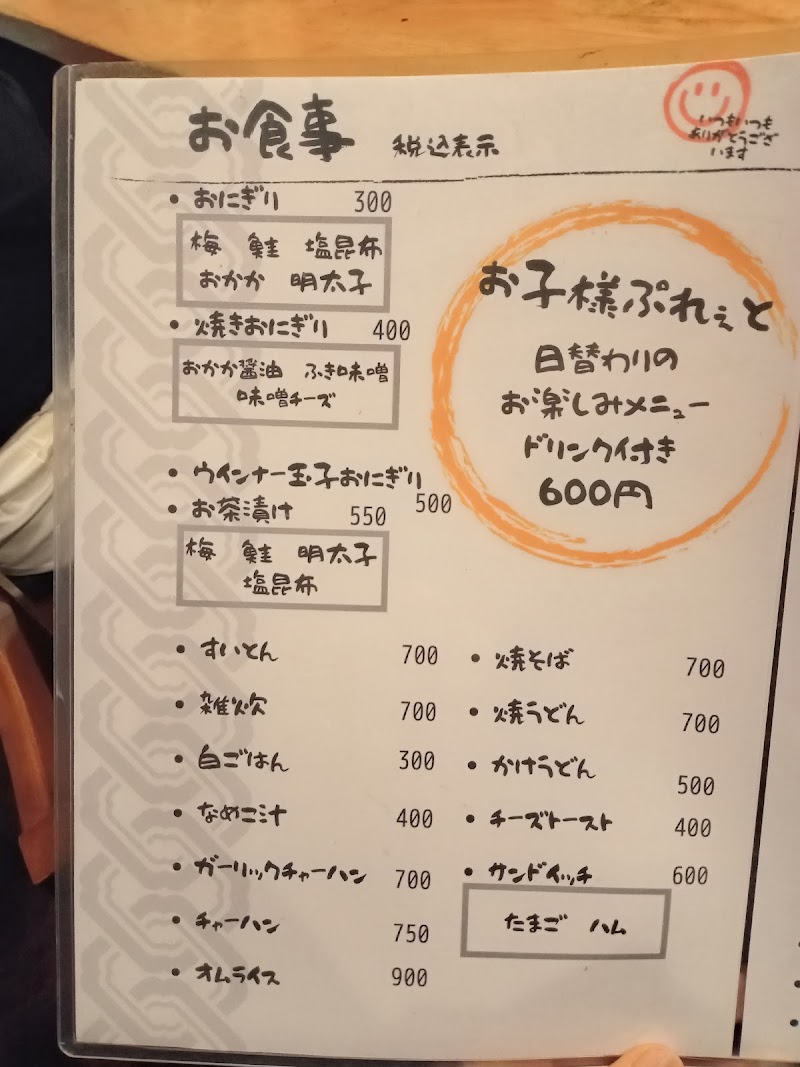 お食事 税込表示
いつもいつも
ありがとうござ
います
• おにぎり 300
梅 鮭 塩昆布
おかか 明太子
• 焼きおにぎり 400
おかか醤油 ふき味噌
味噌チーズ
• ウインナー玉子おにぎり
500
• お茶漬け 550
梅 鮭 明太子
塩昆布
お子様ぷれぇと
日替わりの
お楽しみメニュー
ドリンク付き
600円
• すいとん 700
• 雑炊 700
• 白ごはん 300
• なめこ汁 400
• ガーリックチャーハン 700
• チャーハン 750
• オムライス 900
• 焼そば 700
• 焼うどん 700
• かけうどん 500
• チーズトースト 400
• サンドイッチ 600
たまご ハム